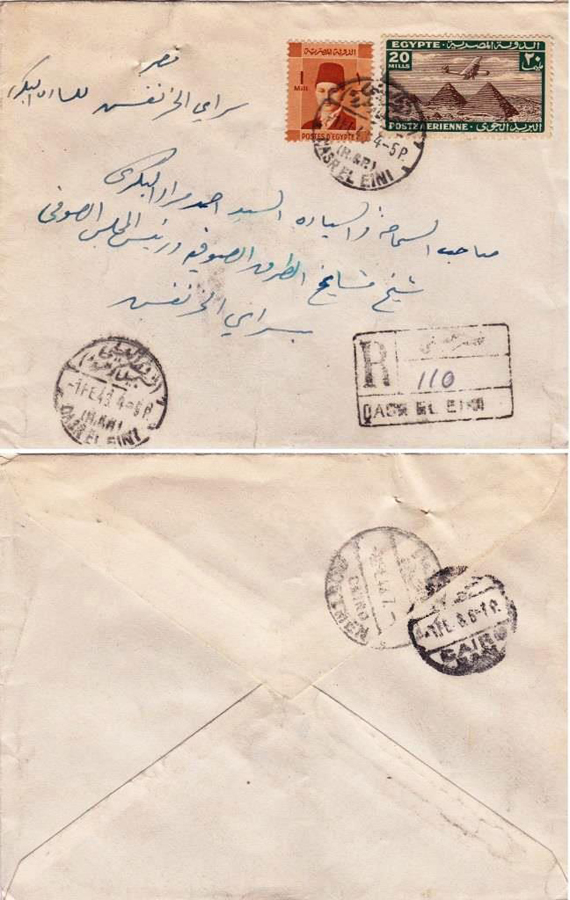 مصر
سراي الخرنفش للساده البكريه
الدولة المصرية
1
Mill
POSTES D'EGYPTE
EGYPTE الدولة المصرية
20
MILLS
٢٠
POSTE AERIENNE البريد الجوى
4-5 P.
(H.&R)
QASR EL EINI
صاحب السماحة والسياده السيد احمد مراد البكرى
شيخ مشايخ الطرق الصوفيه ورئيس المجلس الصوفى
بسراي الخرنفش
-1 FE 43 4-5 P.
QASR EL EINI
R
110
QASR EL EINI
CAIRO
6-7 P.
CAIRO